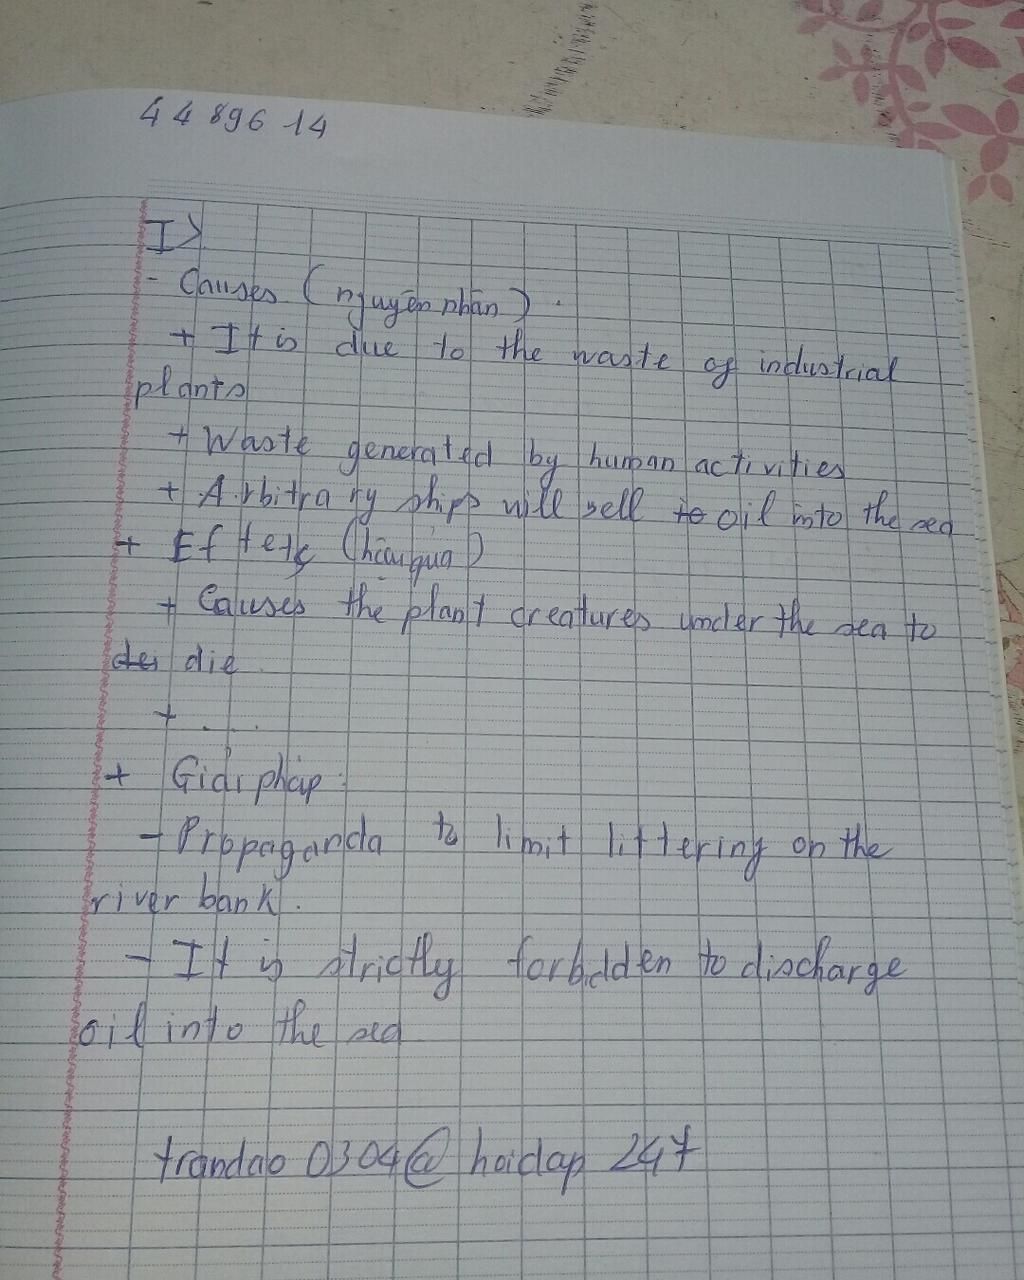 44 896 14
I>
- Causes (nguyên nhân).
+ It is due to the waste of industrial
plants
+ Waste generated by human activities
+ Arbitrary ships will sell to oil into the sea
+ Effets (hậu quả)
+ Causes the plant creatures under the sea to
dei die.
+ ....
+ Giải pháp:
- Propaganda to limit littering on the
river bank.
- It is strictly forbidden to discharge
oil into the sea
trandao 0304@ hoidap 247